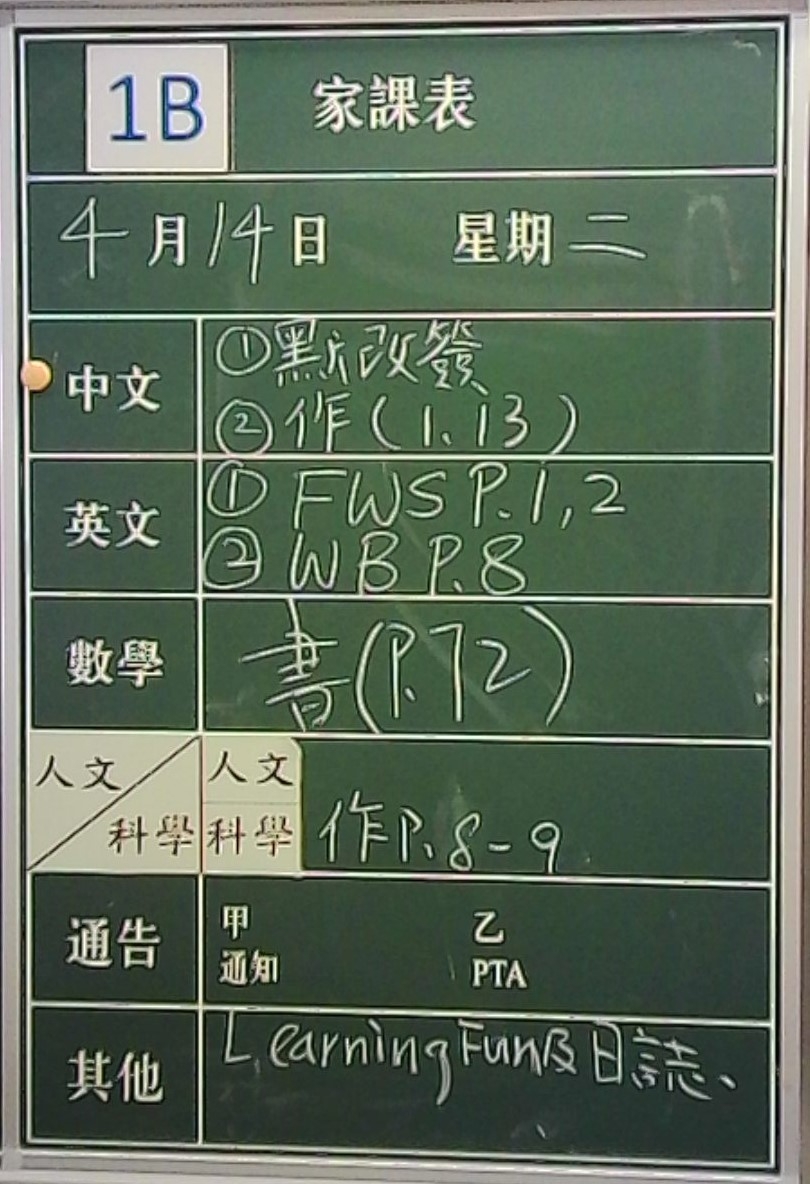 1B 家課表
4月14日 星期二
中文 ①默改簽
②作(1.13)
英文 ① FWS P.1,2
② WB P.8
數學 書(P.72)
人文 人文
科學 科學 作P.8-9
通告 甲 乙
通知 PTA
其他 Learning Fun及日誌、